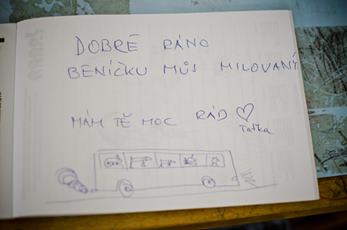 DOBRÉ RÁNO
BENÍČKU MŮJ MILOVANÝ
MÁM TĚ MOC RÁD
Taťka